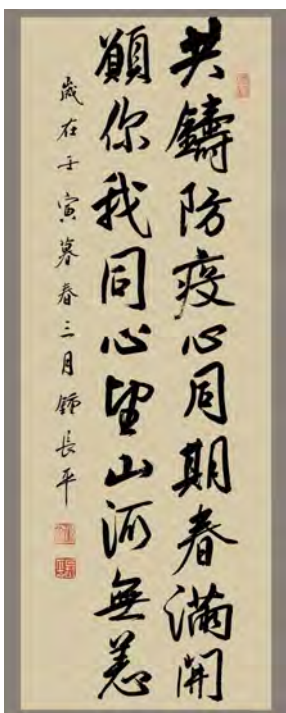 共鑄防疫心同期春滿開
願你我同心望山河無恙
歲在壬寅暮春三月鍾長平